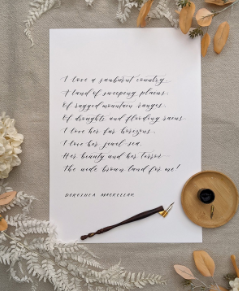 I love a sunburnt country,
A land of sweeping plains,
Of ragged mountain ranges,
Of droughts and flooding rains.
I love her far horizons,
I love her jewel-sea,
Her beauty and her terror -
The wide brown land for me!
DOROTHEA MACKELLAR